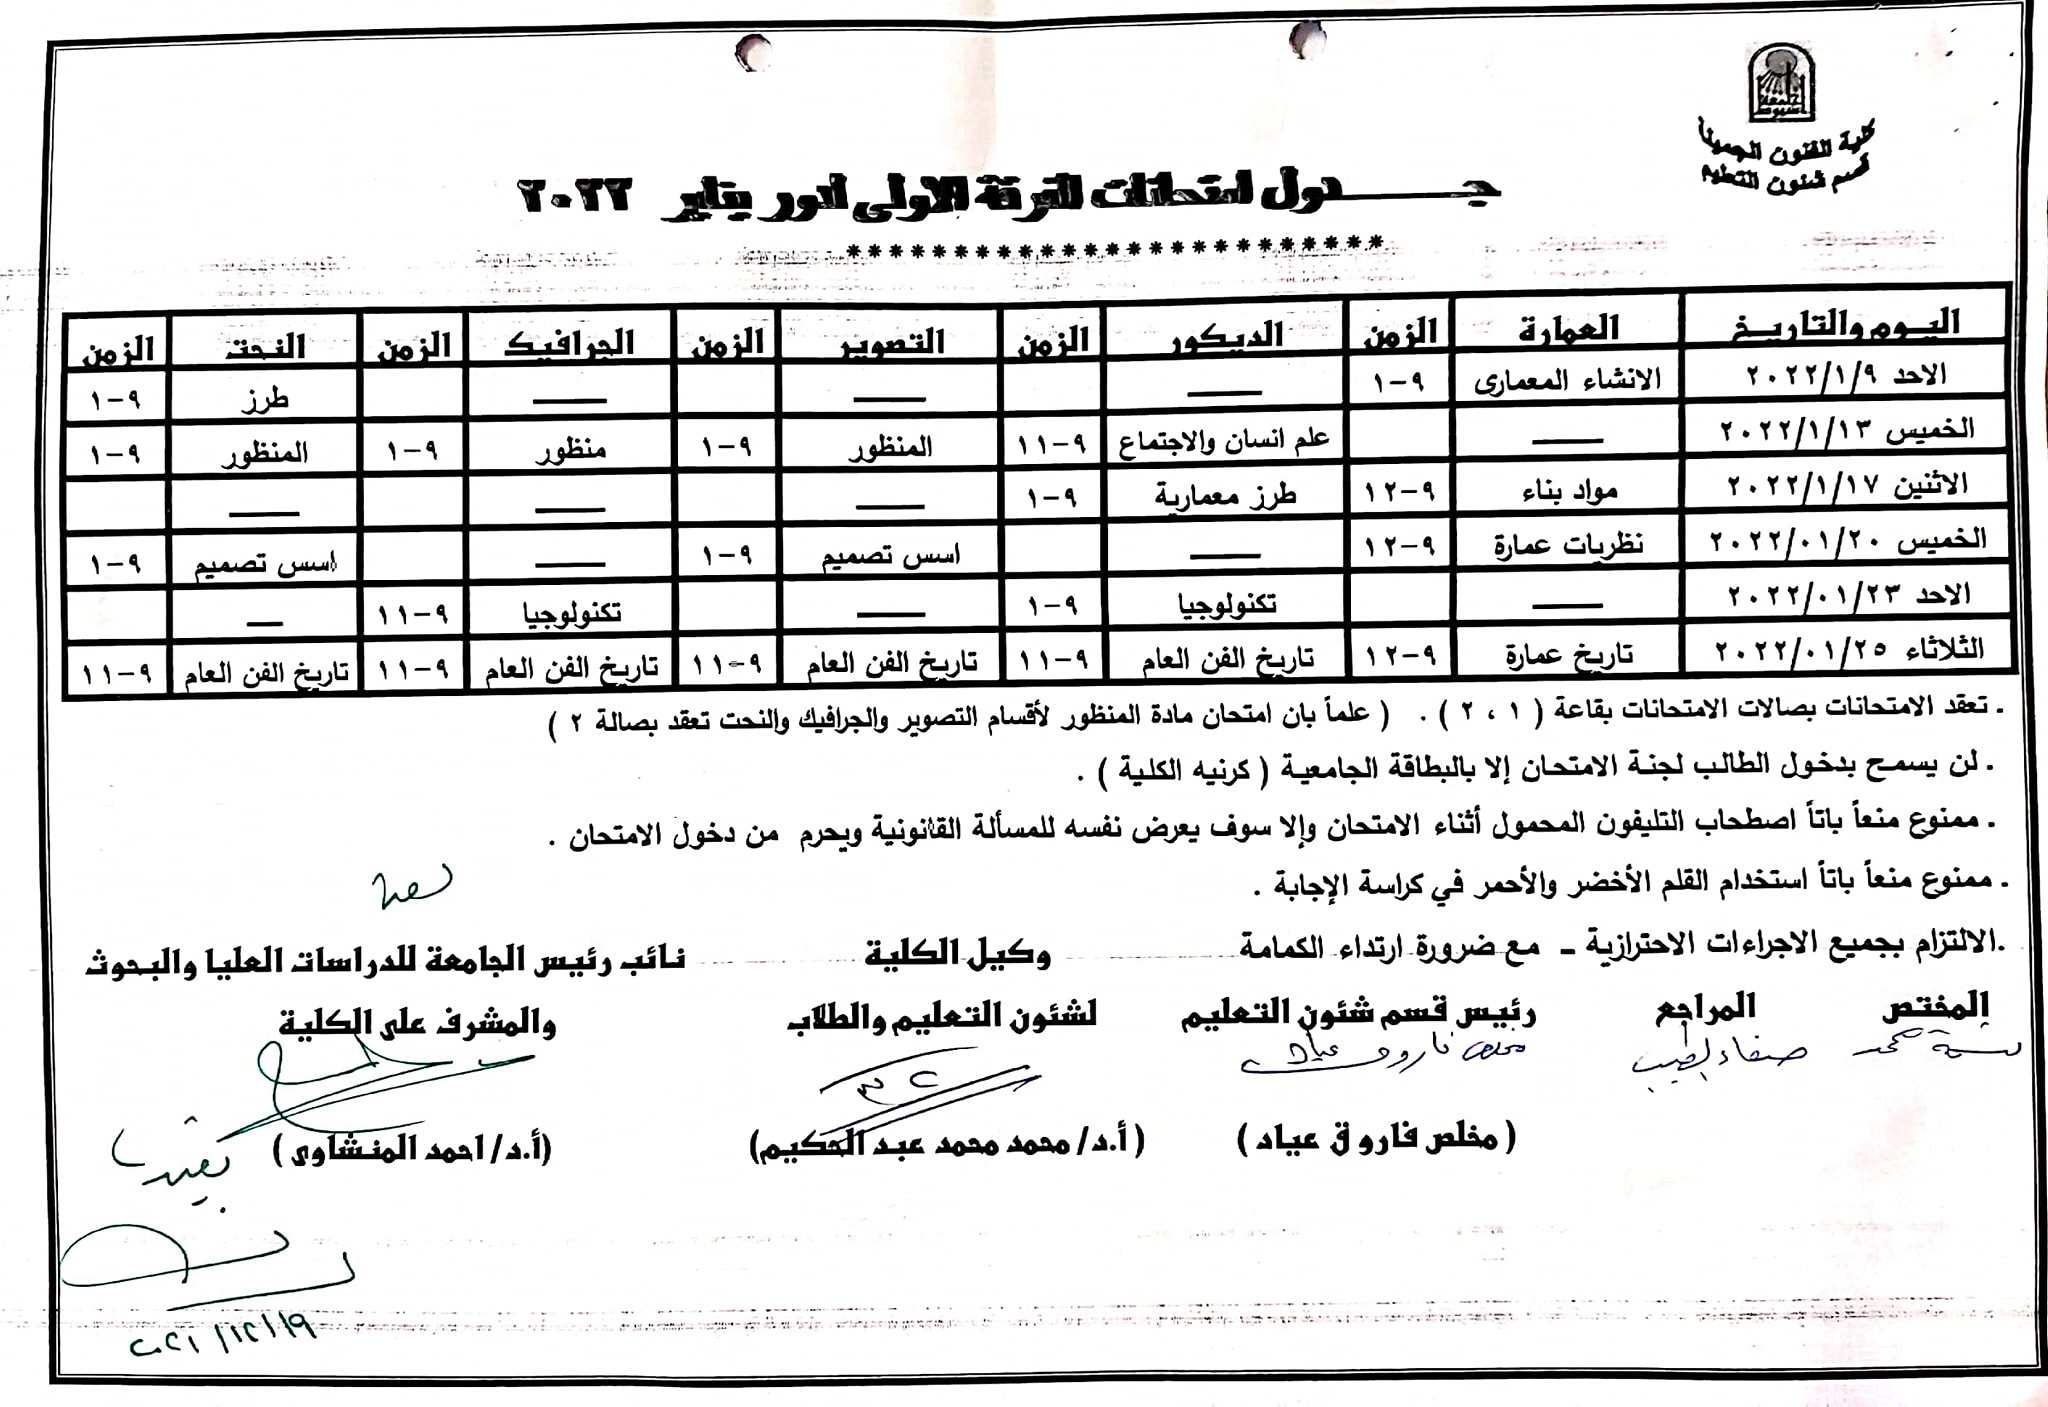 جامعة
أسيوط
كلية الفنون الجميلة
قسم شئون التعليم
جـــــدول امتحانات الفرقة الاولى لدور يناير ٢٠٢٢
*************************
اليوم والتاريخ العمارة الزمن الديكور الزمن التصوير الزمن الجرافيك الزمن النحت الزمن
الاحد ٢٠٢٢/١/٩ الانشاء المعمارى ٩-١ ــــــ ــــــ ــــــ طرز ٩-١
الخميس ٢٠٢٢/١/١٣ ــــــ علم انسان والاجتماع ٩-١١ المنظور ٩-١ منظور ٩-١ المنظور ٩-١
الاثنين ٢٠٢٢/١/١٧ مواد بناء ٩-١٢ طرز معمارية ٩-١ ــــــ ــــــ ــــــ
الخميس ٢٠٢٢/٠١/٢٠ نظريات عمارة ٩-١٢ ــــــ اسس تصميم ٩-١ ــــــ اسس تصميم ٩-١
الاحد ٢٠٢٢/٠١/٢٣ ــــــ تكنولوجيا ٩-١ ــــــ تكنولوجيا ٩-١١ ـــ
الثلاثاء ٢٠٢٢/٠١/٢٥ تاريخ عمارة ٩-١٢ تاريخ الفن العام ٩-١١ تاريخ الفن العام ٩-١١ تاريخ الفن العام ٩-١١ تاريخ الفن العام ٩-١١
. تعقد الامتحانات بصالات الامتحانات بقاعة ( ١ ، ٢ ) . ( علماً بان امتحان مادة المنظور لأقسام التصوير والجرافيك والنحت تعقد بصالة ٢ )
. لن يسمح بدخول الطالب لجنة الامتحان إلا بالبطاقة الجامعية ( كرنيه الكلية ) .
. ممنوع منعاً باتاً اصطحاب التليفون المحمول أثناء الامتحان وإلا سوف يعرض نفسه للمسألة القانونية ويحرم من دخول الامتحان .
. ممنوع منعاً باتاً استخدام القلم الأخضر والأحمر في كراسة الإجابة .
.الالتزام بجميع الاجراءات الاحترازية – مع ضرورة ارتداء الكمامة
وكيل الكلية نائب رئيس الجامعة للدراسات العليا والبحوث
المختص المراجع رئيس قسم شئون التعليم لشئون التعليم والطلاب والمشرف على الكلية
صفاء الطيب مخلص فاروق عياد
( مخلص فاروق عياد ) ( أ.د/ محمد محمد عبد الحكيم) (أ.د/ احمد المنشاوى )
٢٠٢١/١٢/١٩